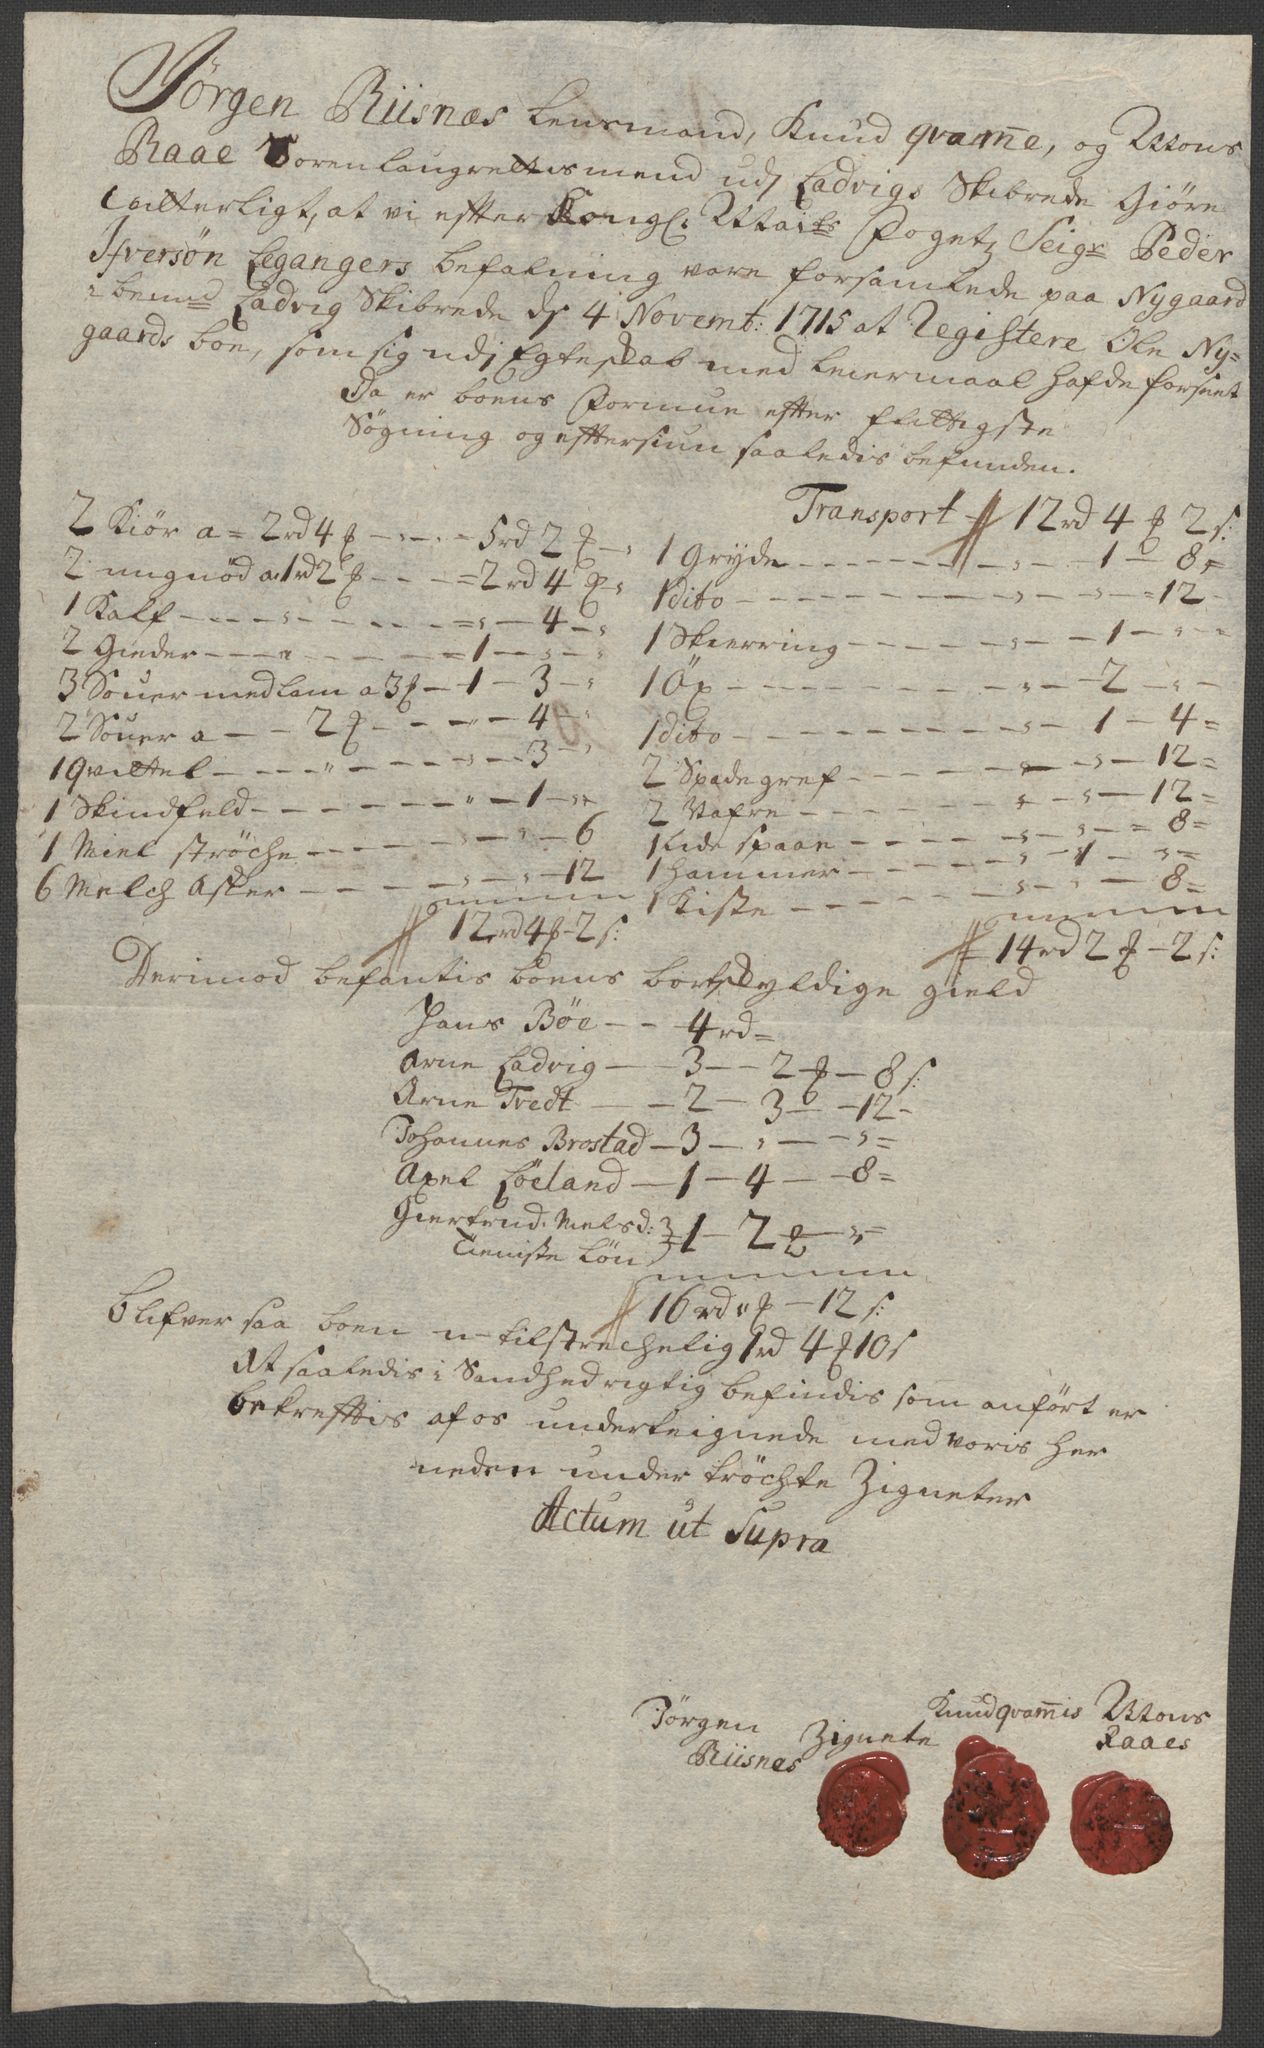 Jörgen Riisnæs Lensmand, Knud qvam̄e, og Mons
Raae Soren laugrettis mend udj Ladvigs Skibrede Giöre
vitterligt, at vi effter Kongl: Maits Fogetz Seigr Peder
Ifversön Legangers befalning vare forsamlede paa Nygaard
i bemd Ladvig Skibrede dj 4 Novemb: 1715 at Registere Ole Ny=
gaards boe, som sig udj Egteskab med leiermaal hafde forseet
Da er boens Formue effter flittigste
Sögning og efftersiun saaledis befunden.
2 Kiör a = 2rd 4 ß - - - 5rd 2 ß - "
2 ungnöd a 1rd 2 ß - - - = 2rd 4 ß "
1 Kalf - - - " - - - = " - 4 - "
2 Gieder - - - a - - - = 1 - " - "
3 Souer med lam a 3 ß - 1 - 3 - "
2 Souer a - - 2 ß - - - " - 4 - "
1 Qvittel - - - " - - - " - 3 - "
1 Skindfeld - - - - - " - 1 - "
1 Miel ströche - - - " - " - 6
6 Melch Asker - - - " - " - 12
12rd 4 ß - 2 s:
Transport 12rd 4 ß 2 s:
1 Gryde - - - - - " - 1 - 8 =
1 dito - - - - - " - " - = 12 -
1 Skierring - - - - " - 1 - " -
1 Öx - - - - - " - 2 - " -
1 dito - - - - - " - 1 - 4 =
2 Spade gref - - - - " - " - 12 =
2 Nafre - - - - " - " - 12 =
1 Lide spaan - - - " - " - = 8 =
1 hammer - - - - " - 1 - " =
1 Kiste - - - - " - " - 8 =
14rd 2 ß - 2 s:
Derimod befantis boens bortskyldige gield
Hans Böe - - 4rd =
Arne Ladvig - - 3 - - 2 ß - 8 s:
Arne Tvedt - - 2 - 3 - - 12 -
Johannes Brostad - 3 - " - - " =
Axel Löeland - 1 - 4 - - 8 =
Giertrud Melsd:
Tieniste Lön } 1 - 2 ß - " =
16rd " ß - 12 s:
blifver saa boen u-tilstrechelig 1rd 4 ß 10 s
At saaledis i Sandhed rigtig befindis som anfört er
bekrefftis af os underteignede med voris her
neden under tröchte Zigneter
Actum ut Supra
Jörgen Zignete Knud qvam̄is Mons
Riisnes Raaes